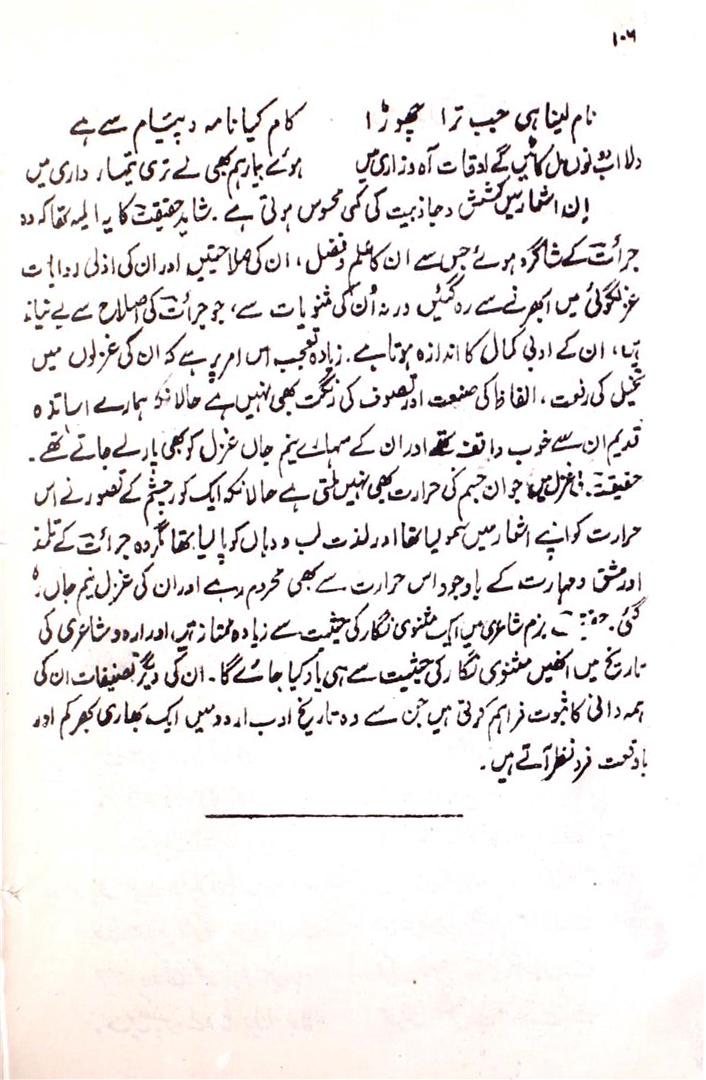 ۱۰۶
نام لینا ہی جب ترا چھوڑا کام کیا نامہ و پیام سے ہے
دلا اب دونوں مل کاٹیں گے اوقات آہ و زاری میں ہوئے بیمار ہم بھی لے تری تیمار داری میں
اِن اشعار میں کشش و جاذبیت کی کمی محسوس ہوتی ہے۔ شاید حقیقت کا یہ المیہ تھا کہ وہ
جرأت کے شاگرد ہوئے جس سے ان کا علم و فضل، ان کی صلاحیتیں اور ان کی ادبی روایات
غزلگوئی میں ابھرنے سے رہ گئیں ورنہ اُن کی مثنویات سے، جو جرأت کی اصلاح سے بے نیاز
ہیں، ان کے ادبی کمال کا اندازہ ہوتا ہے۔ زیادہ تعجب اس امر پر ہے کہ ان کی غزلوں میں
تخیل کی رفعت، الفاظ کی صنعت اور تصوف کی رنگت بھی نہیں ہے حالانکہ ہمارے اساتذہ
قدیم ان سے خوب واقف تھے اور ان کے سہارے نیم جاں غزل کو بھی پار لے جاتے تھے۔
حقیقت غزل میں جوان جسم کی حرارت بھی نہیں ملتی ہے حالانکہ ایک کور چشم کے تصور نے اس
حرارت کو اپنے اشعار میں سمو لیا تھا اور لذت لب و دہاں کو پا لیا تھا مگر وہ جرأت کے تلمذ
اور مشق و مہارت کے باوجود اس حرارت سے بھی محروم رہے اور ان کی غزل نیم جاں رہ
گئی۔ حقیقت بزم شاعری میں ایک مثنوی نگار کی حیثیت سے زیادہ ممتاز ہیں اور اردو شاعری کی
تاریخ میں انھیں مثنوی نگار کی حیثیت سے ہی یاد کیا جائے گا۔ ان کی دیگر تصنیفات ان کی
ہمہ دانی کا ثبوت فراہم کرتی ہیں جن سے وہ تاریخ ادب اردو میں ایک بھاری بھرکم اور
باوقعت فرد نظر آتے ہیں۔